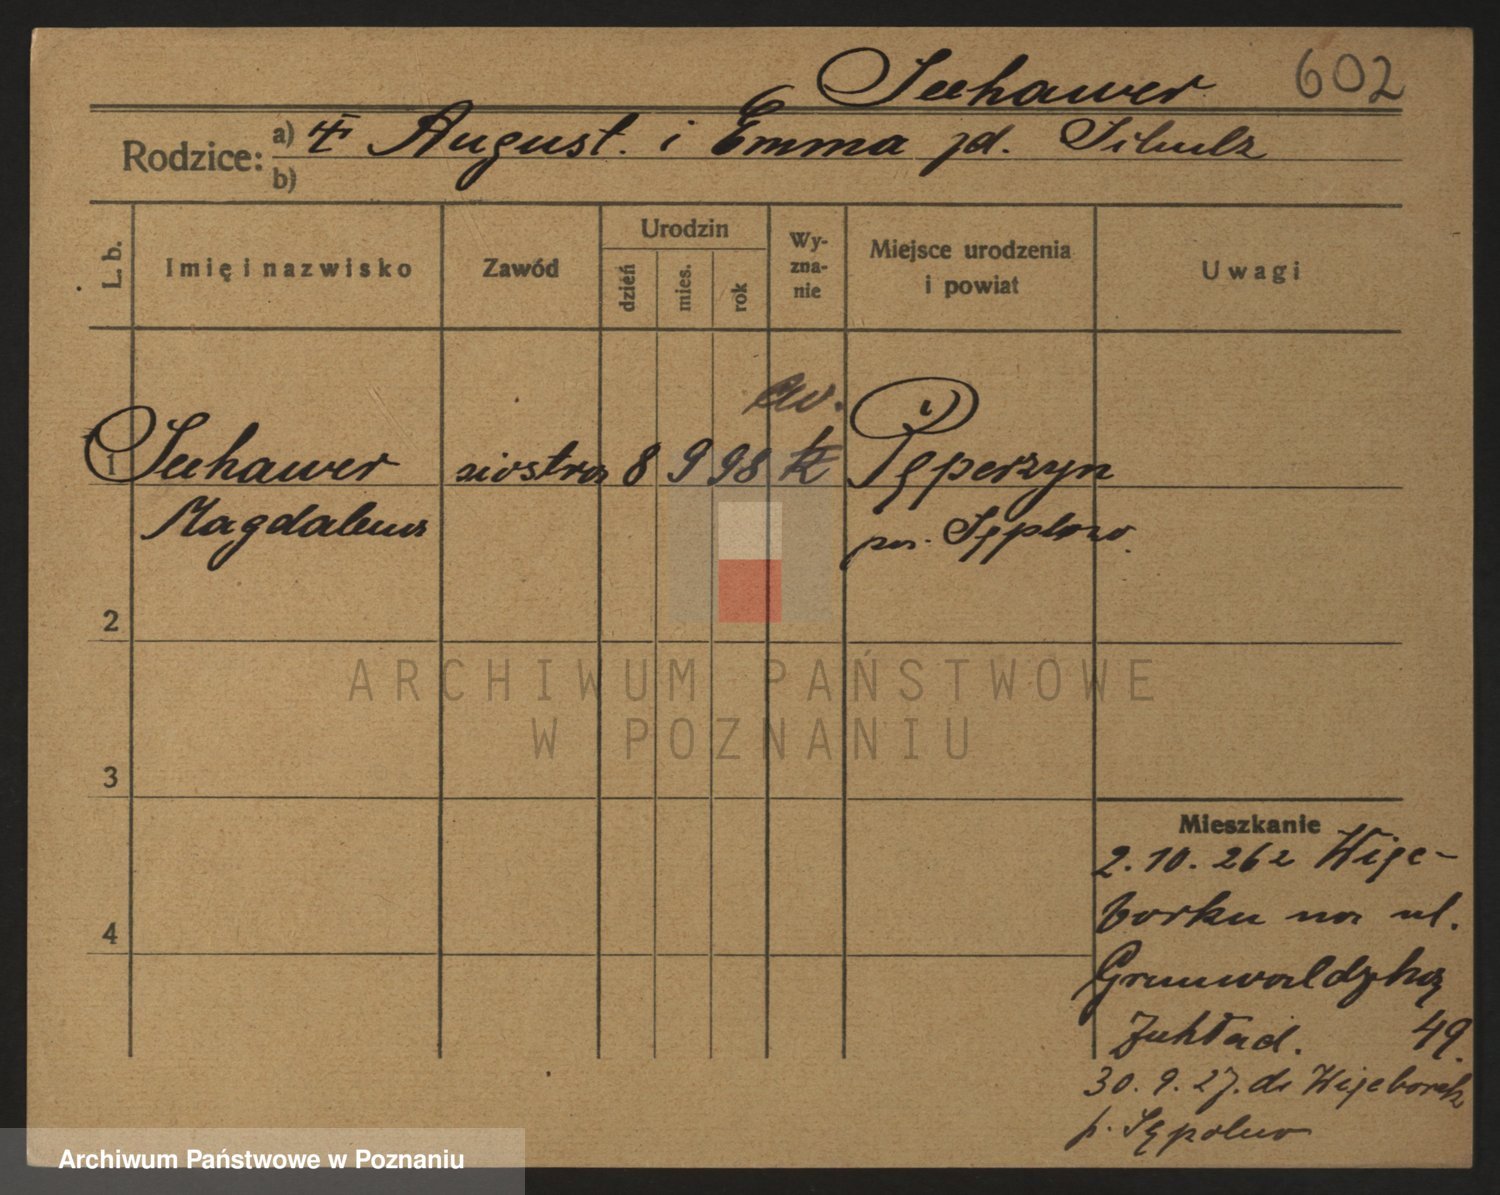 Seehawer 602
Rodzice: a) ‡ August. i Emma zd. Schulz
b)
L. b. Imię i nazwisko Zawód Urodzin dzień mies. rok Wy-zna-nie Miejsce urodzenia i powiat Uwagi
ew.
1 Seehawer siostra 8 9 98 k Pęperzyn
Magdalena pow. Sępolno.
2
ARCHIWUM PAŃSTWOWE
W POZNANIU
3
Mieszkanie
2. 10. 26 z Więc-
borku na ul.
4
Grunwaldzką
Zakład. 49.
30. 9. 27. do Więcbork
p. Sępolno
Archiwum Państwowe w Poznaniu